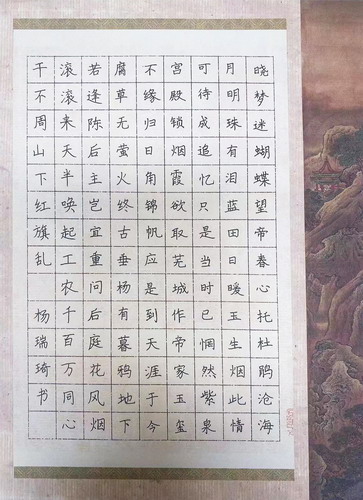 晓梦迷蝴蝶望帝春心托杜鹃沧海
月明珠有泪蓝田日暖玉生烟此情
可待成追忆只是当时已惘然紫泉
宫殿锁烟霞欲取芜城作帝家玉玺
不缘归日角锦帆应是到天涯于今
腐草无萤火终古垂杨有暮鸦地下
若逢陈后主岂宜重问后庭花风烟
滚滚来天半唤起工农千百万同心
干不周山下红旗乱 杨瑞琦书